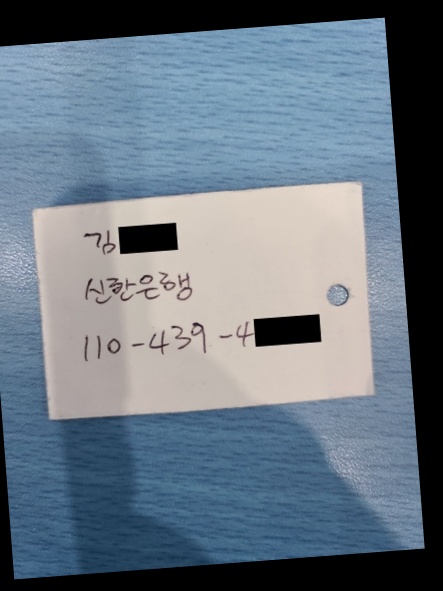 김
신한은행
110-439-4